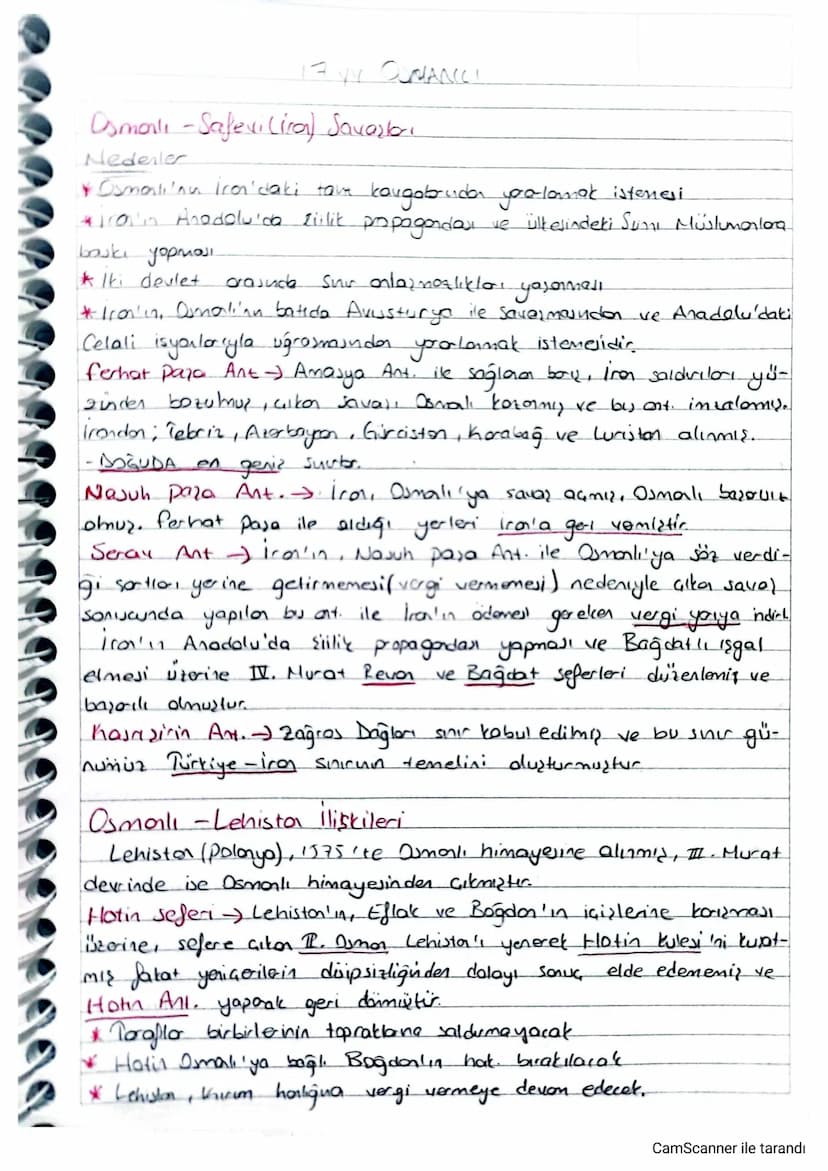 17. yy OSMANLI
Osmanlı - Safevi (İran) Savaşları
Nedenler
* Osmanlı'nın İran'daki taht kavgalarından yararlanmak istemesi
* İran'ın Anadolu'da şiilik propagandası ve ülkesindeki Sunni Müslümanlara
baskı yapması
* İki devlet arasında sınır anlaşmazlıkları yaşanması
* İran'ın, Osmanlı'nın batıda Avusturya ile savaşmasından ve Anadolu'daki
Celali isyanlarıyla uğraşmasından yararlanmak istemesidir.
Ferhat Paşa Ant → Amasya Ant. ile sağlanan barış, İran saldırıları yü-
zünden bozulmuş, çıkan savaşı Osmanlı kazanmış ve bu ant. imzalamış.
İrandan; Tebriz, Azerbaycan, Gürcistan, Karabağ ve Luristan alınmış.
- DOĞUDA en geniş sınırlar.
Nasuh Paşa Ant. → İran, Osmanlı'ya savaş açmış, Osmanlı başarısız
olmuş. Ferhat Paşa ile aldığı yerleri İran'a geri vermiştir.
Serav Ant → İran'ın, Nasuh paşa Ant. ile Osmanlı'ya söz verdi-
ği şartları yerine getirmemesi (vergi vermemesi) nedeniyle çıkan savaş
sonucunda yapılan bu ant. ile İran'ın ödemesi gereken vergi yarıya indiril
İran'ın Anadolu'da şiilik propagandası yapması ve Bağdat'ı işgal
etmesi üzerine IV. Murat Revan ve Bağdat seferleri düzenlemiş ve
başarılı olmuştur.
Kasrışirin Ant. → Zağros Dağları sınır kabul edilmiş ve bu sınır gü-
nümüz Türkiye - İran sınırının temelini oluşturmuştur
Osmanlı - Lehistan İlişkileri
Lehistan (Polonya), 1575'te Osmanlı himayesine alınmış, III. Murat
devrinde ise Osmanlı himayesinden çıkmıştır.
Hotin seferi → Lehistan'ın, Eflak ve Boğdan'ın içişlerine karışması
üzerine, sefere çıkan II. Osman Lehistan'ı yenerek Hotin Kulesi'ni kuşat-
mış fakat yeniçerilerin disipsizliğinden dolayı sonuç elde edememiş ve
Hotin Ant. yaparak geri dönmüştür.
* Taraflar birbirlerinin topraklarına saldırmayacak
* Hotin Osmanlı'ya bağlı Boğdan'ın hak. bırakılacak
* Lehistan, Kırım hanlığına vergi vermeye devam edecek.
CamScanner ile tarandı